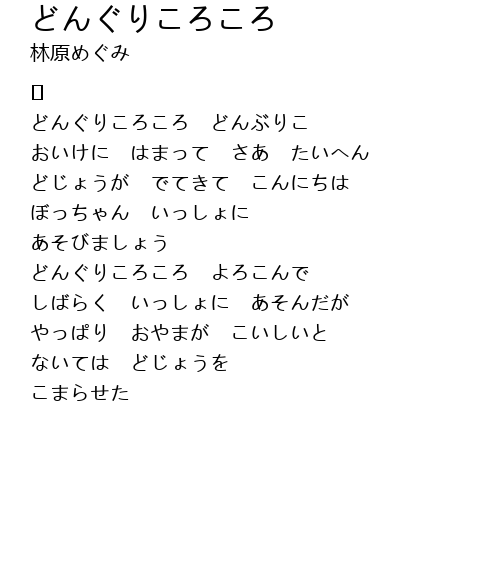 どんぐりころころ
林原めぐみ
どんぐりころころ　どんぶりこ
おいけに　はまって　さあ　たいへん
どじょうが　でてきて　こんにちは
ぼっちゃん　いっしょに
あそびましょう
どんぐりころころ　よろこんで
しばらく　いっしょに　あそんだが
やっぱり　おやまが　こいしいと
ないては　どじょうを
こまらせた